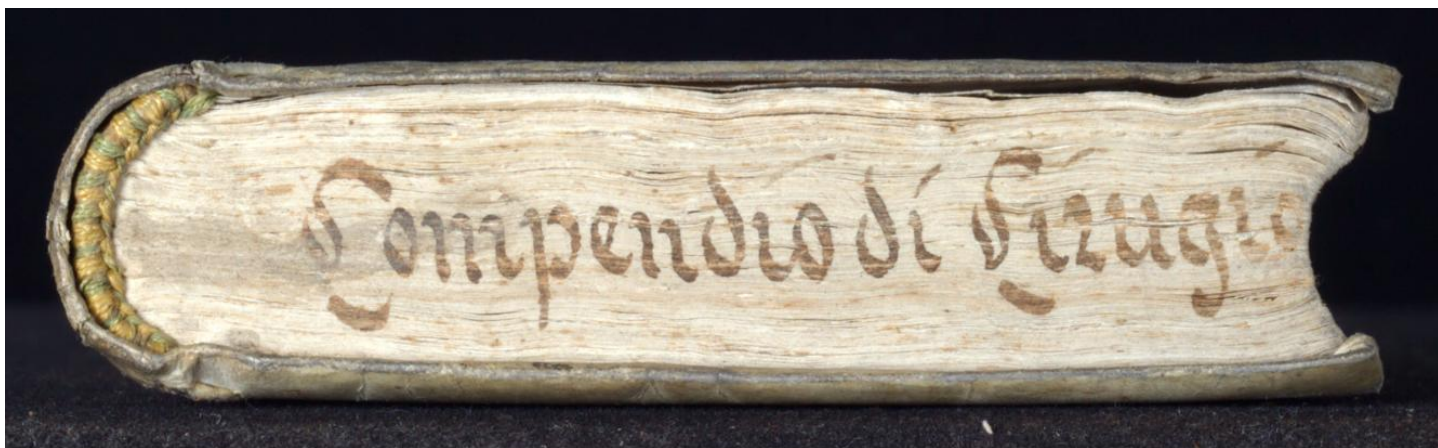 Compendio di Cirugia